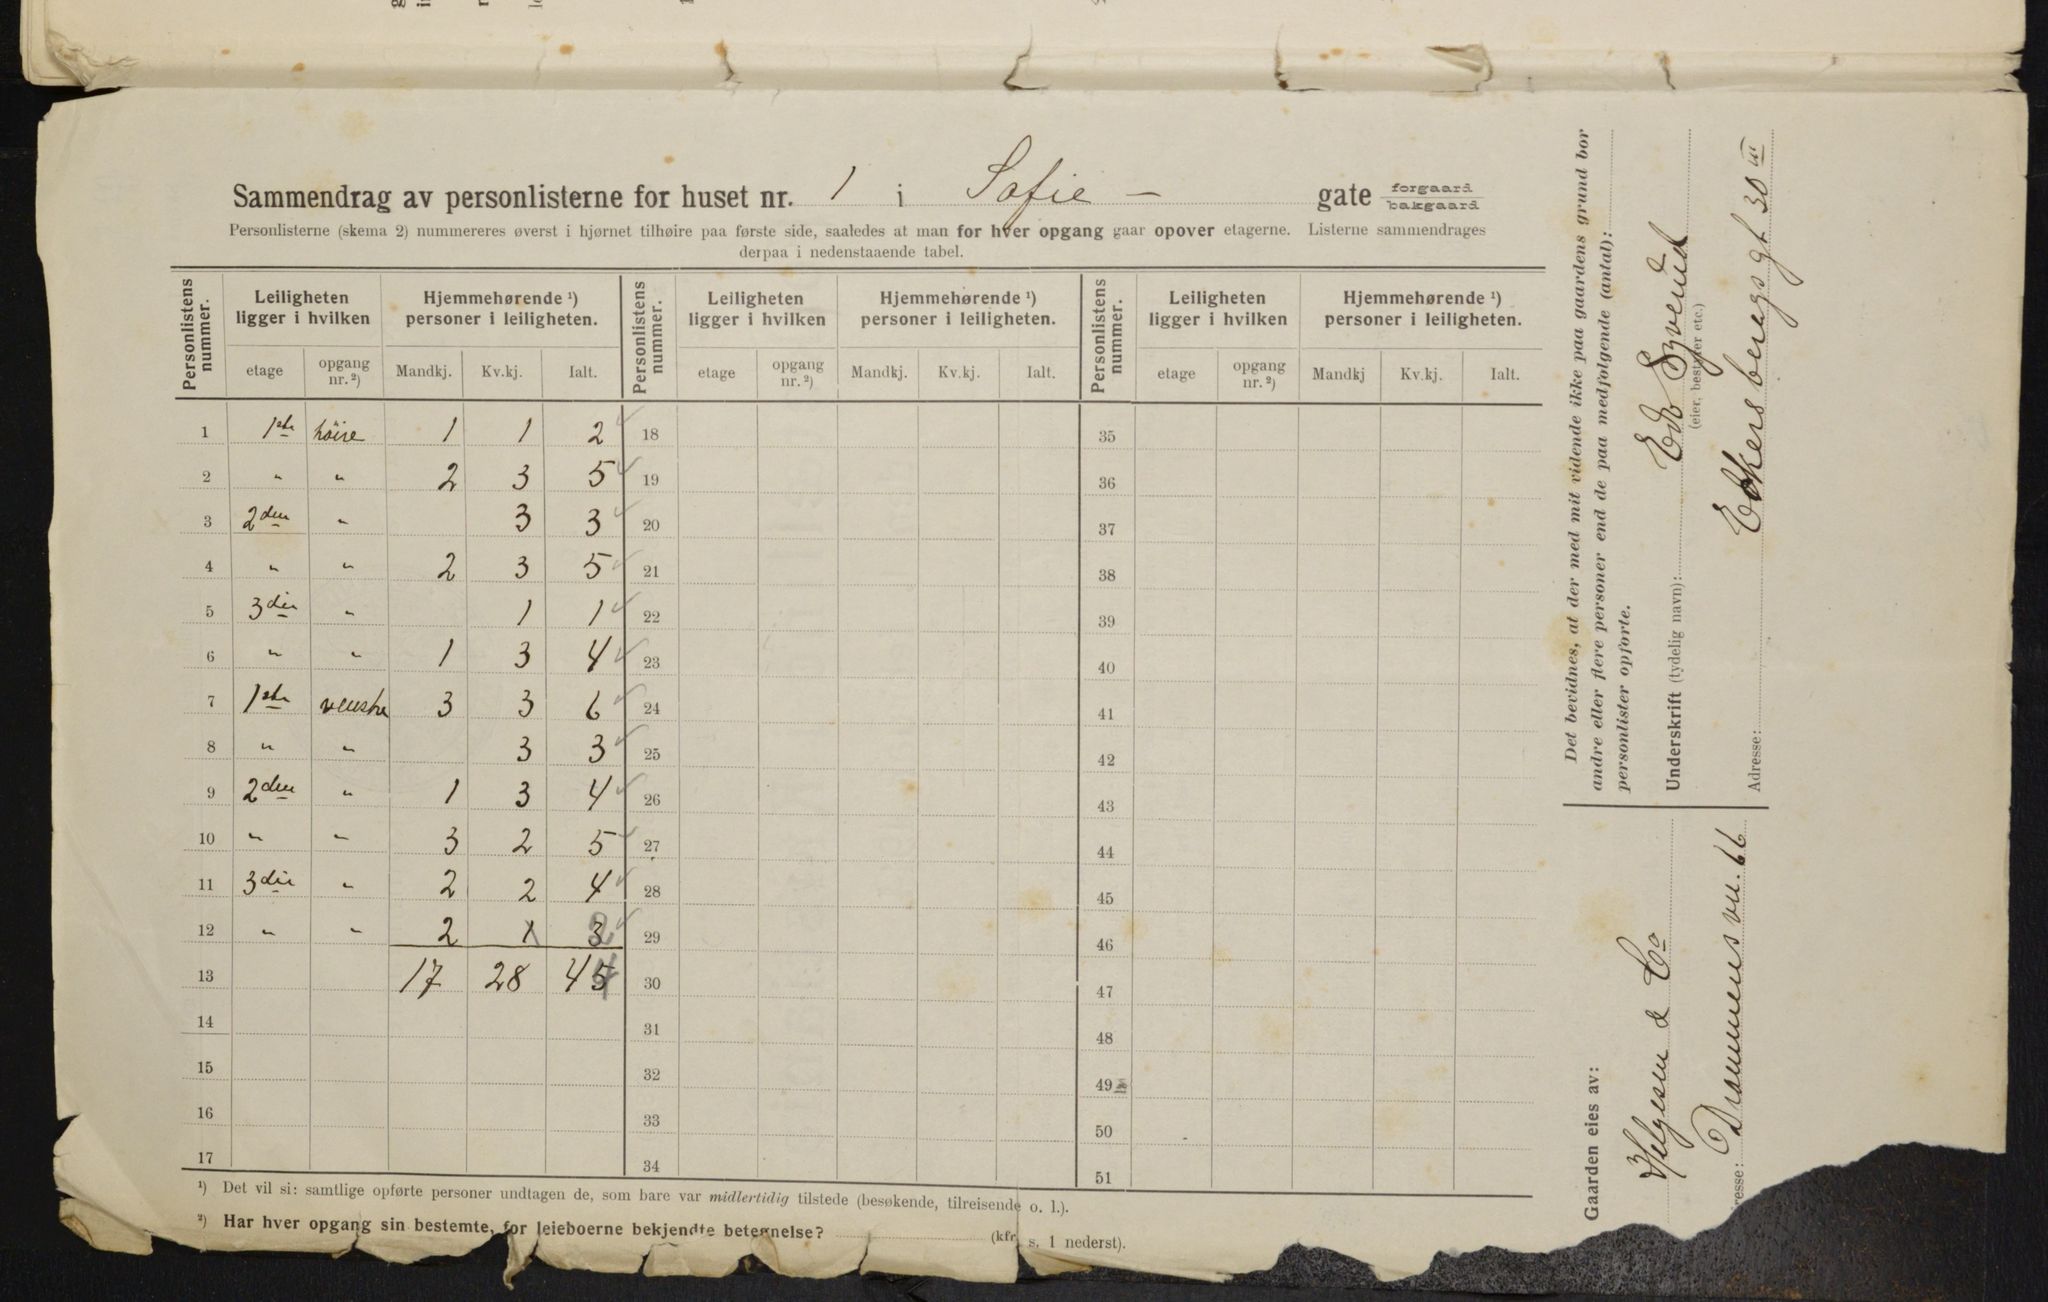 Sammendrag av personlisterne for huset nr. 1 i Sofie – gate forgaard bakgaard
Personlisterne (skema 2) nummereres øverst i hjørnet tilhøire paa første side, saaledes at man for hver opgang gaar opover etagerne. Listerne sammendrages
derpaa i nedenstaaende tabel.
Personlistens nummer. Leiligheten ligger i hvilken Hjemmehørende ¹) personer i leiligheten. Personlistens nummer. Leiligheten ligger i hvilken Hjemmehørende ¹) personer i leiligheten. Personlistens nummer. Leiligheten ligger i hvilken Hjemmehørende ¹) personer i leiligheten.
etage opgang nr. ²) Mandkj. Kv.kj. Ialt. etage opgang nr. ²) Mandkj. Kv.kj. Ialt. etage opgang nr. ²) Mandkj Kv.kj. Ialt.
1 1ste höire 1 1 2 18 35
2 " " 2 3 5 19 36
3 2den " 3 3 20 37
4 " " 2 3 5 21 38
5 3die " 1 1 22 39
6 " " 1 3 4 23 40
7 1ste venstre 3 3 6 24 41
8 " " 3 3 25 42
9 2den " 1 3 4 26 43
10 " " 3 2 5 27 44
11 3die " 2 2 4 28 45
12 " " 2 1 3 2 29 46
13 17 28 45 4 30 47
14 31 48
15 32 49
16 33 50
17 34 51
¹) Det vil si: samtlige opførte personer undtagen de, som bare var midlertidig tilstede (besøkende, tilreisende o. l.).
²) Har hver opgang sin bestemte, for leieboerne bekjendte betegnelse? (kfr. s. 1 nederst).
Det bevidnes, at der med mit vidende ikke paa gaardens grund bor
andre eller flere personer end de paa medfølgende (antal):
personlister opførte.
Underskrift (tydelig navn):
(eier, bestyrer etc.)
Adresse: Eckersbergsgt 30 III
Gaarden eies av:
Helgesen & Co
resse: Drammensvn. 66